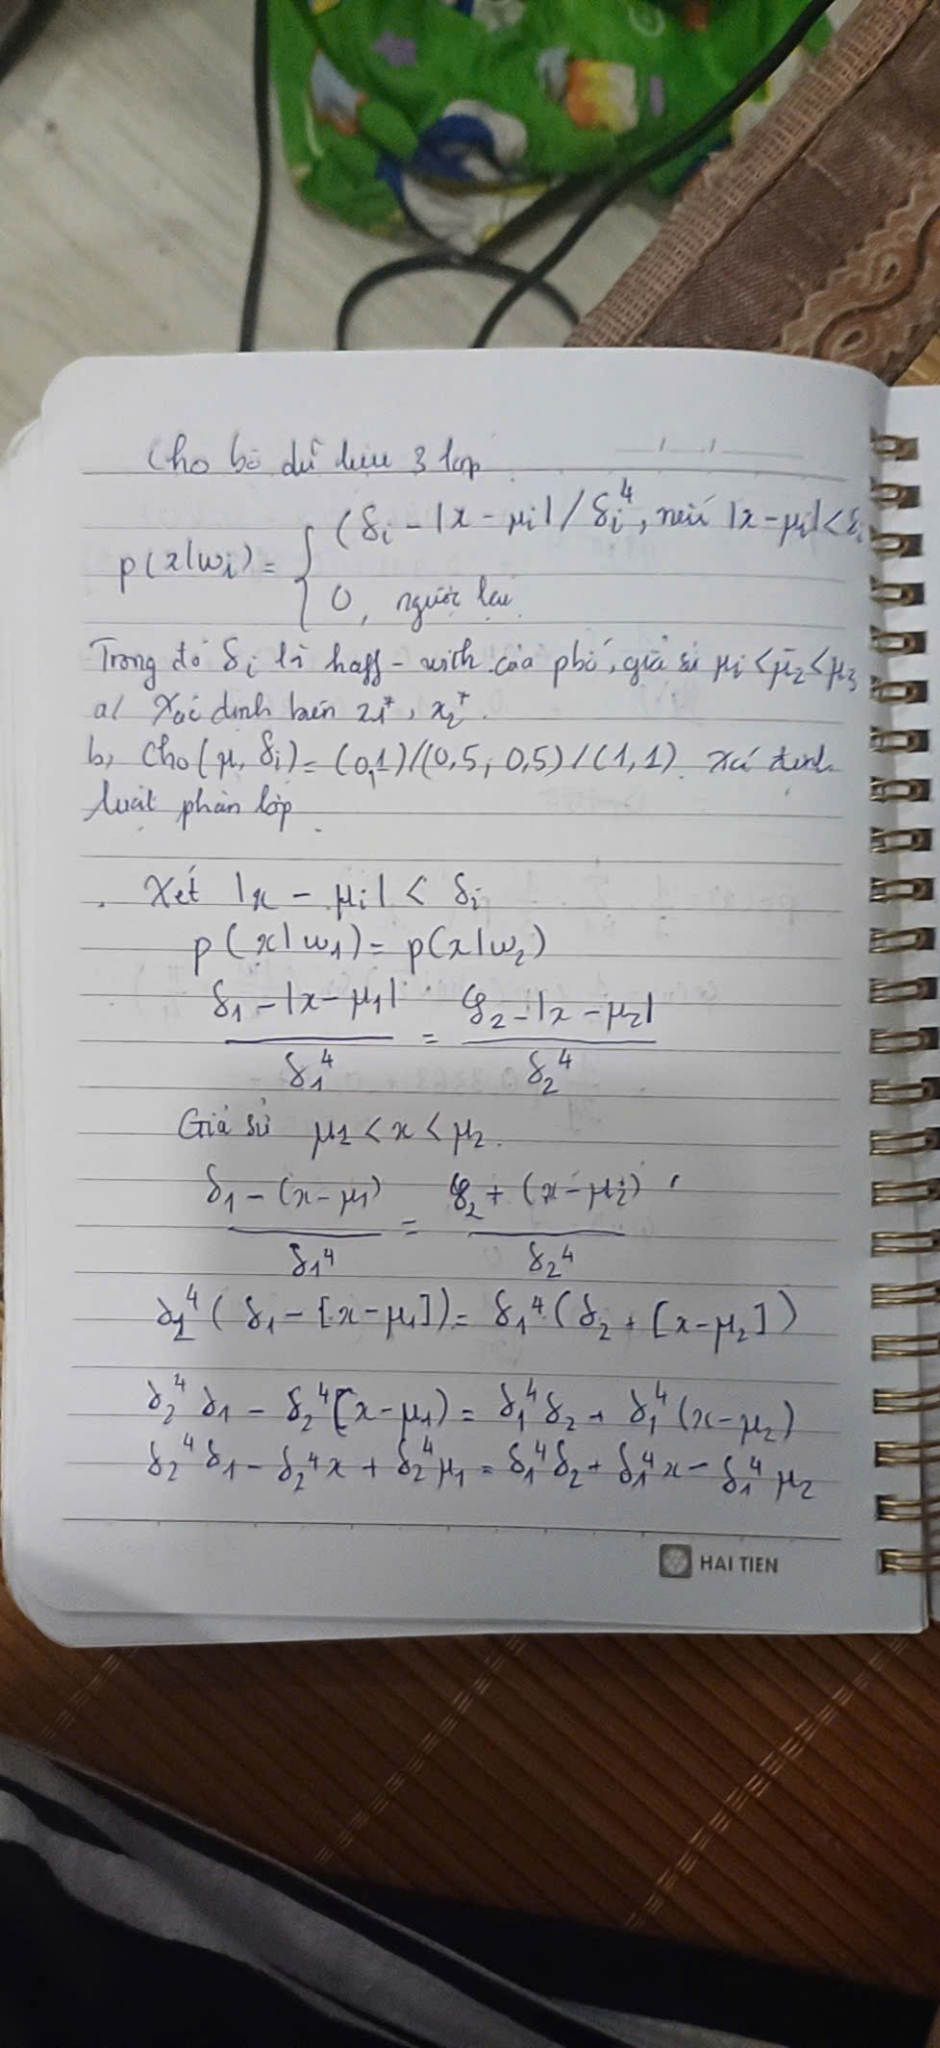 Cho bộ dữ liệu 3 lớp
p(x|wi) = { (δi - |x - μi| / δi^4, nếu |x - μi| < δi
0, người lại
Trong đó δi là haff - with của phố, giả sử μi < μ2 < μ3
a/ Xác định biên x1*, x2*.
b, Cho (μ, δi) = (0,1)/(0,5; 0,5)/(1,1). Xá định
luật phân lớp.
. Xét |x - μi| < δi
p(x|w1) = p(x|w2)
δ1 - |x - μ1| / δ1^4 = δ2 - |x - μ2| / δ2^4
Giả sử μ1 < x < μ2.
δ1 - (x - μ1) / δ1^4 = δ2 + (x - μ2) / δ2^4
δ2^4 (δ1 - [x - μ1]) = δ1^4 (δ2 + [x - μ2])
δ2^4 δ1 - δ2^4 (x - μ1) = δ1^4 δ2 + δ1^4 (x - μ2)
δ2^4 δ1 - δ2^4 x + δ2^4 μ1 = δ1^4 δ2 + δ1^4 x - δ1^4 μ2
HAI TIEN